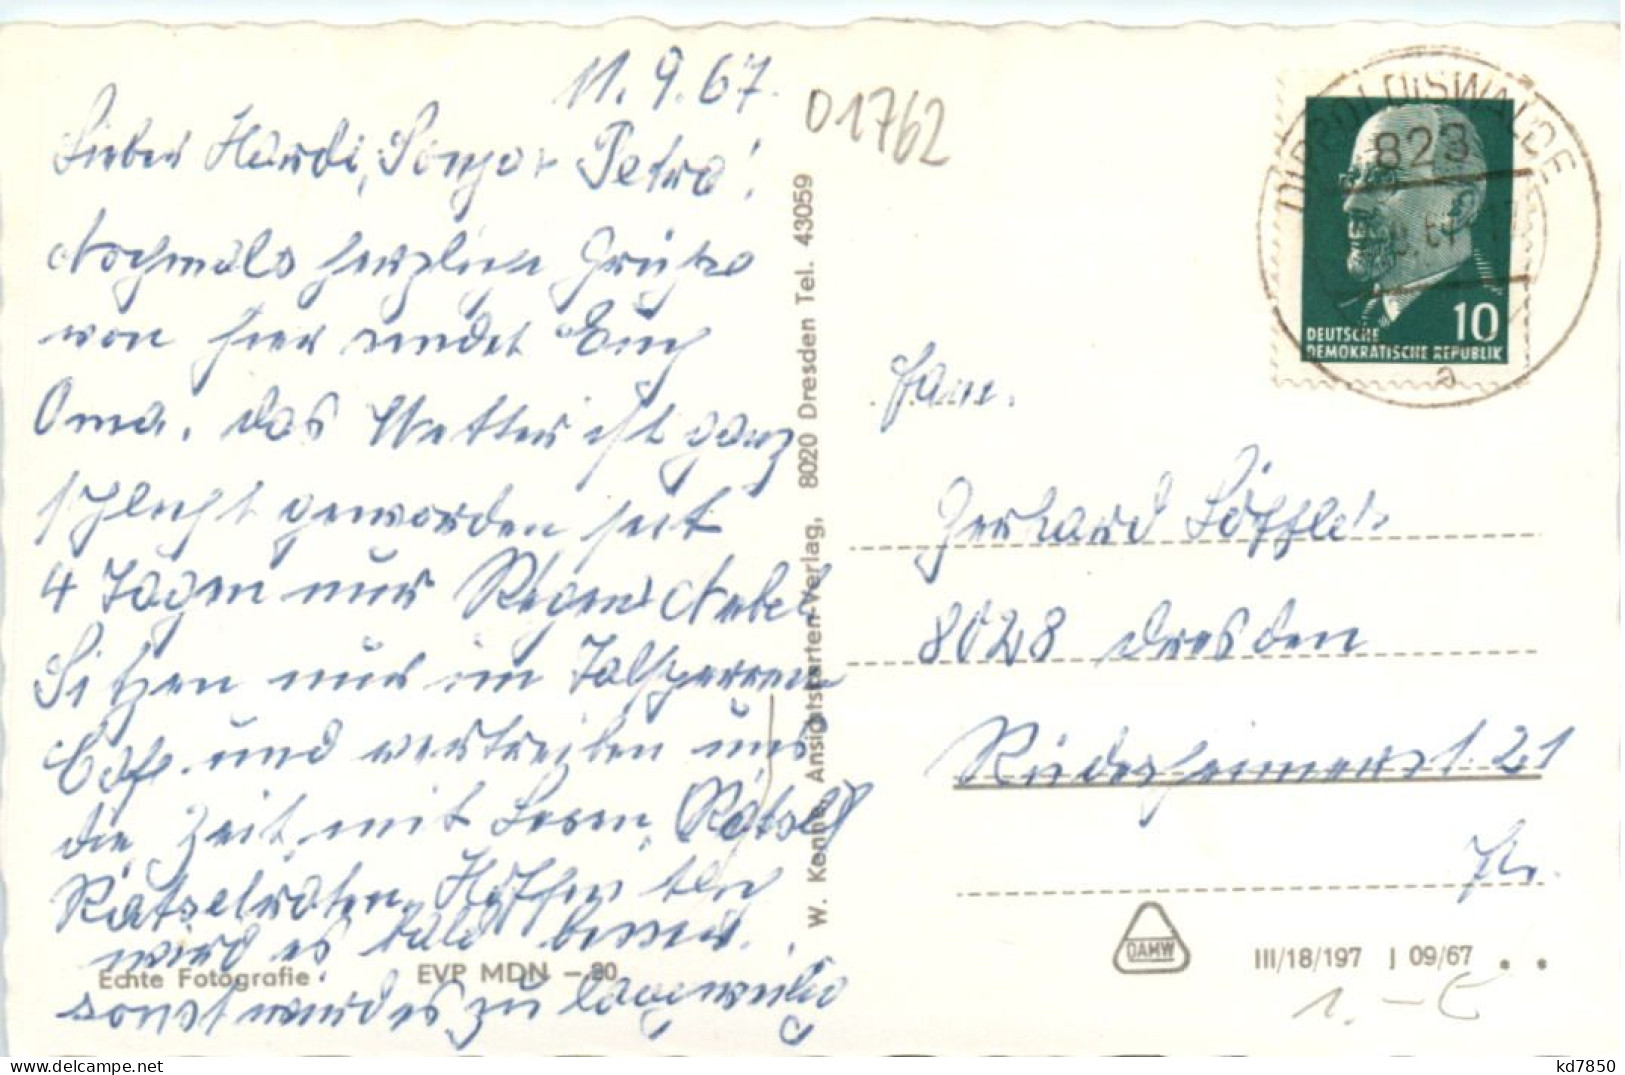 11.9.67.
Lieber Hardi, Sonja + Petra!
Nochmals herzliche Grüße
von hier sendet Euch
Oma, das Wetter ist ganz
schlecht geworden seit
4 Tagen nur Regen u Nebel
Sitzen nur im Talsperren
Cafe und vertreiben uns
die Zeit mit Lesen, Rätsel
Rätselraten. Hoffentlich
wird es bald besser.
sonst wird es zu langweilig
Echte Fotografie
EVP MDN – 20
W. Kenne, Ansichtskarten-Verlag, 8020 Dresden Tel. 43059
01762
DIPPOLDISWALDE
823
e
10
DEUTSCHE
DEMOKRATISCHE REPUBLIK
Fam.
Gerhard Löffler
8028 Dresden
Rüdesheimerst. 21
DAMW
III/18/197 J 09/67
1.-
kd7850